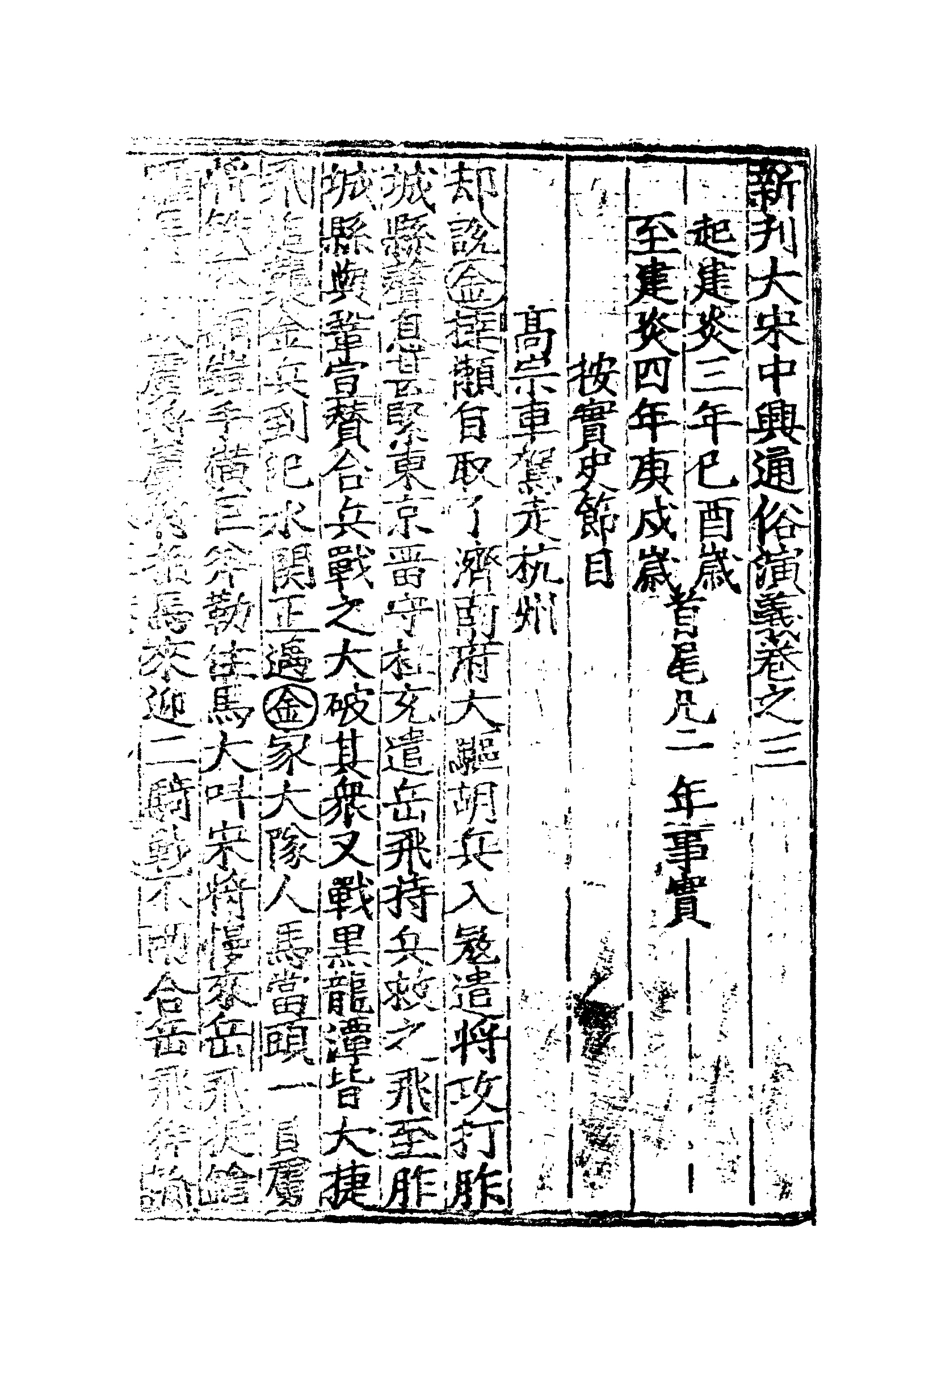 新刊大宋中興通俗演義卷之三
起建炎三年己酉歲
至建炎四年庚戌歲
首尾凡二年事實
按實史節目
高宗車駕走杭州
却說金撻懶自取了濟南府大驅胡兵入寇遣將攻打胙
城縣聲息甚緊東京畱守杜充遣岳飛持兵救之飛至胙
城縣與鞏宣賛合兵戰之大破其衆又戰黑龍潭皆大捷
飛追襲金兵到汜水関正遇金家大隊人馬當頭一員驍
將鎧手橫巨斧勒住馬大叫宋將慢來岳飛挺鎗
馬來迎二騎戰不兩合岳飛